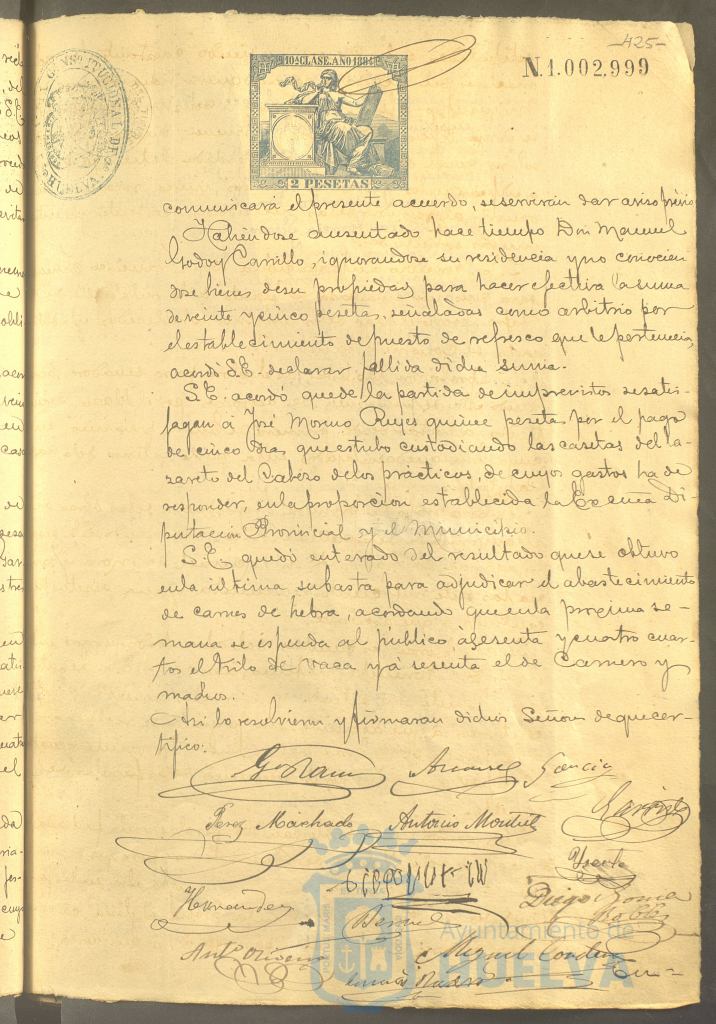 -425-
10ª CLASE. AÑO 1884
N.1.002,999
CONSTITUCIONAL DE
HUELVA
2 PESETAS
comunicará el presente acuerdo, se servirán dar aviso prévio
Habiéndose ausentado hace tiempo Don Manuel
Godoy Carrillo, ignorandose su residencia y no conocien
dose bienes de su propiedad para hacer efectiva la suma
de veinte y cinco pesetas, señaladas como arbitrio por
el establecimiento de puesto de refresco que le pertenecia,
acordó S.E. declarar fallida dicha suma.
S.E. acordó que de la partida de imprevistos se satis-
fagan á José Moreno Reyes quince pesetas por el pago
de cinco dias que estubo custodiando las casetas del la-
zareto del Cabezo de los prácticos, de cuyos gastos ha de
responder, en la proporcion establecida la Excma Di-
putacion Provincial y el Municipio.
S.E. quedó enterado del resultado que se obtuvo
en la última subasta para adjudicar el abastecimiento
de carnes de hebra, acordando que en la proxima se-
mana se espenda al público á sesenta y cuatro cuar-
tos el kilo de vaca y á sesenta el de Carnero y
machos.
Asi lo resolvieron y firmaran dichos Señores de que cer-
tifico.
Garcia
Perez Machado Antonio Montiel
Hernandez
Diego
Antº
Miguel
Ayuntamiento de
HUELVA